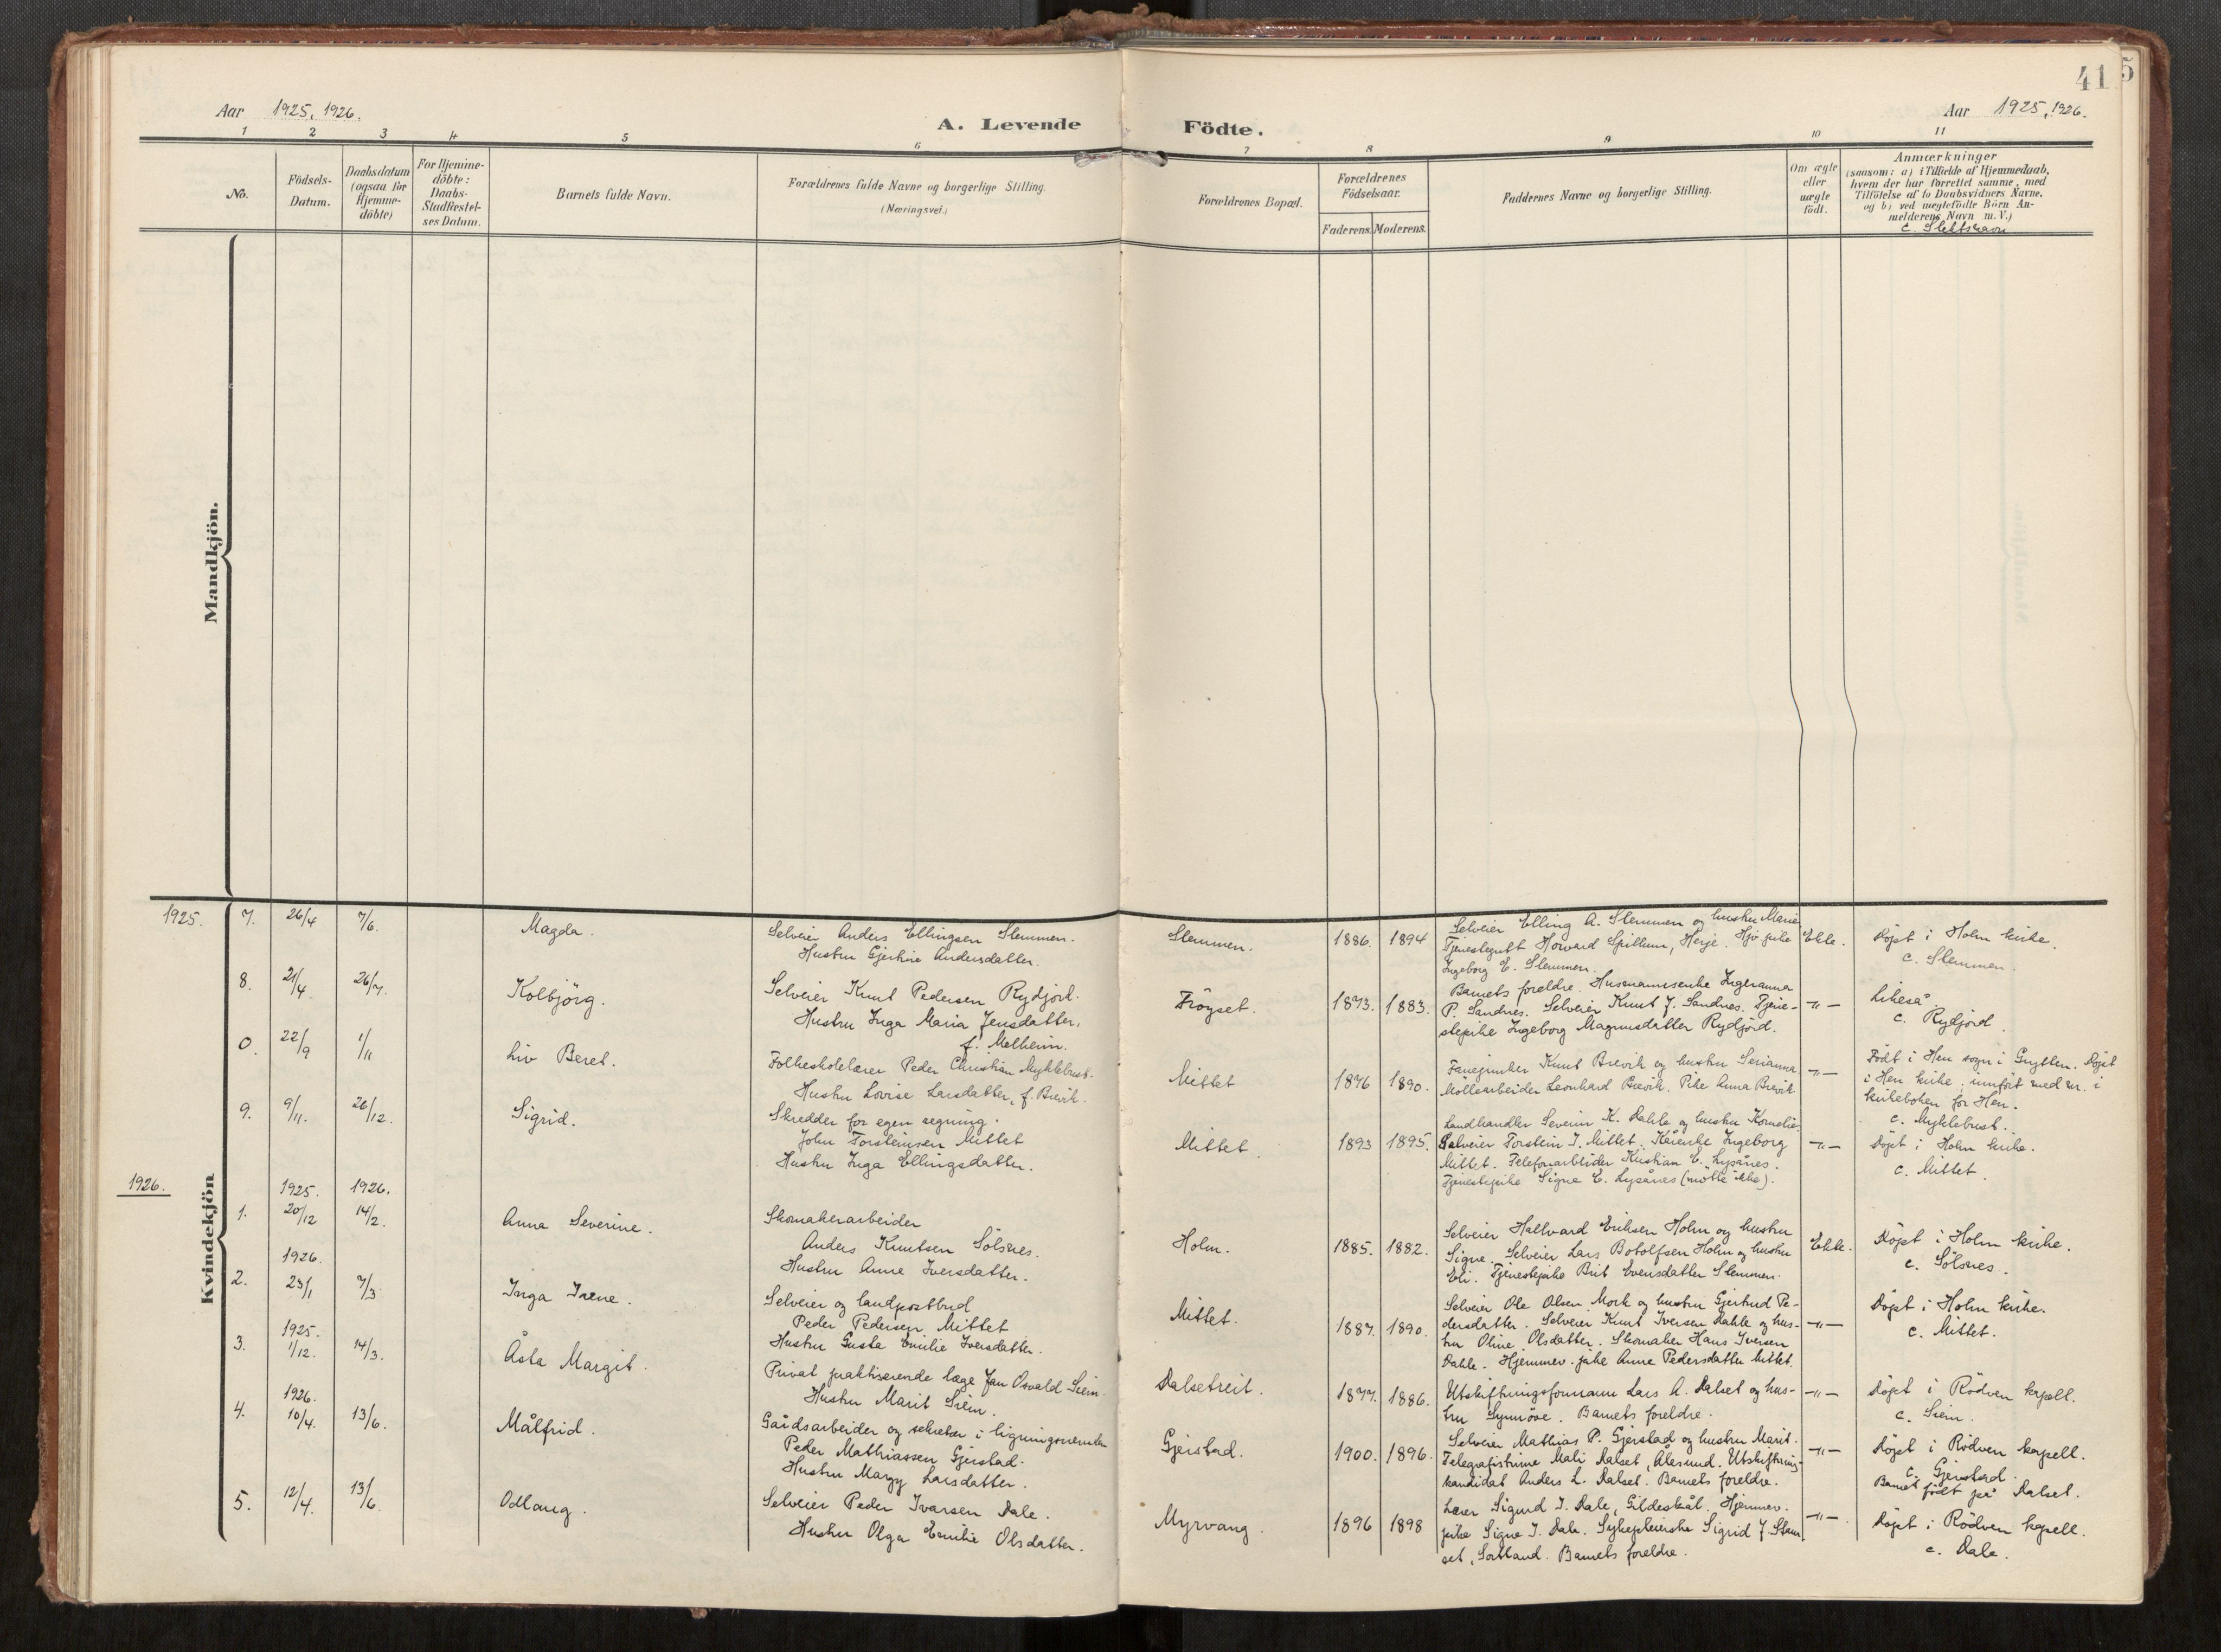 Aar 1925, 1926.
A. Levende Födte.
Aar 1925, 1926.
41
5
1 2 3 4 5 6 7 8 9 10 11
No.
Födsels-
Datum.
Daabsdatum
(ogsaa for
Hjemme-
döbte)
For Hjemme-
döbte:
Daabs-
Stadfæstel-
ses Datum.
Barnets fulde Navn.
Forældrenes fulde Navne og borgerlige Stilling.
(Næringsvei.)
Forældrenes Bopæl.
Forældrenes
Födselsaar.
Faderens. Moderens.
Faddernes Navne og borgerlige Stilling.
Om ægte
eller
uægte
födt.
Anmærkninger
(saasom: a) i Tilfælde af Hjemmedaab,
hvem der har forrettet samme, med
Tilföielse af to Daabsvidners Navne,
og b) ved uægtefödte Börn An-
melderens Navn m. V.)
c. Slektsnavn
Mandkjön.
Kvindekjön
1925.
7. 26/4 7/6. Magda.
Selveier Anders Ellingsen Slemmen.
Hustru Gjertine Andersdatter.
Slemmen. 1886. 1894
Selveier Elling A. Slemmen og hustru Marie
Tjenestegutt Howard Spillum, Herje. Hjv. pike
Ingeborg E. Slemmen.
Ekte.
Döpt i Holm kirke.
c. Slemmen.
8. 21/4 26/7. Kolbjörg.
Selveier Knut Pedersen Rydjord.
Hustru Inga Maria Jensdatter,
f. Melheim.
Fröyset. 1873. 1883.
Barnets foreldre. Husmannsenke Ingeranna
P. Sandnes. Selveier Knut J. Sandnes. Tjene-
stepike Ingeborg Magnusdatter Rydjord.
-"-
Likeså.
c. Rydjord.
0. 22/9 1/11 Liv Beret.
Folkeskolelærer Peder Christian Myklebust.
Hustru Lovise Larsdatter, f. Brevik.
Mittet 1876 1890.
Fanejunker Knut Brevik og hustru Serianna
Möllearbeider Leonhard Brevik. Pike Anna Brevik
-"-
Födt i Hen sogn i Grytten. Döpt
i Hen kirke, innfört med nr. i
kirkeboken for Hen.
c. Myklebust.
9. 9/11. 26/12. Sigrid.
Skredder for egen regning.
John Torsteinsen Mittet
Hustru Inga Ellingsdatter.
Mittet. 1893 1895.
Landhandler Severin K. Dahle og hustru Kornelie.
Selveier Torstein J. Mittet. Kårenke Ingeborg
Mittet. Telefonarbeider Kristian E. Lysånes.
Tjenestepike Signe E. Lysånes (mötte ikke).
-"-
Döpt i Holm kirke.
c. Mittet.
1926.
1925. 1926.
1. 20/12 14/2. Anna Severine.
Skomakerarbeider
Anders Knutsen Sölsnes.
Hustru Anne Iversdatter.
Holm. 1885. 1882.
Selveier Hallvard Eriksen Holm og hustru
Signe. Selveier Lars Botolfsen Holm og hustru
Eli. Tjenestepike Brit Evensdatter Slemmen.
Ekte.
Döpt i Holm kirke.
c. Sölsnes.
1926.
2. 23/1 7/3 Inga Irene.
Selveier og landpostbud
Peder Pedersen Mittet
Hustru Gusta Emilie Iversdatter.
Mittet. 1887. 1890.
Selveier Ole Olsen Mork og hustru Gjertrud Pe-
dersdatter. Selveier Knut Iversen Dahle og hus-
tru Oline Olsdatter. Skomaker Hans Iversen
Dahle. Hjemmev. pike Anne Pedersdatter Mittet.
-"-
Döpt i Holm kirke.
c. Mittet.
1925.
3. 1/12. 14/3. Åsta Margit.
Privat praktiserende læge Jan Osvald Siem.
Hustru Marit Siem.
Dalsetreit. 1877. 1886.
Utskiftningsformann Lars A. Dalset og hus-
tru Synnöve. Barnets foreldre.
-"-
Döpt i Rödven kapell.
c. Siem.
1926.
4. 10/4. 13/6. Målfrid.
Gårdsarbeider og sekretær i ligningsnemnden
Peder Mathiassen Gjerstad.
Hustru Margy Larsdatter.
Gjerstad. 1900. 1896.
Selveier Mathias P. Gjerstad og hustru Marit.
Telegrafistinne Mali Dalset, Ålesund. Utskiftnings-
kandidat Anders L. Dalset. Barnets foreldre.
-"-
Döpt i Rödven kapell.
c. Gjerstad.
Barnet födt på Dalset.
5. 12/4. 13/6. Odlaug.
Selveier Peder Ivarsen Dale.
Hustru Olga Emilie Olsdatter.
Myrvang. 1896 1898
Lærer Sigurd I. Dale, Gildeskål. Hjemmev.
pike Signe I. Dale. Sykepleierske Sigrid J. Stam
set, Sortland. Barnets foreldre.
-"-
Döpt i Rödven kapell.
c. Dale.